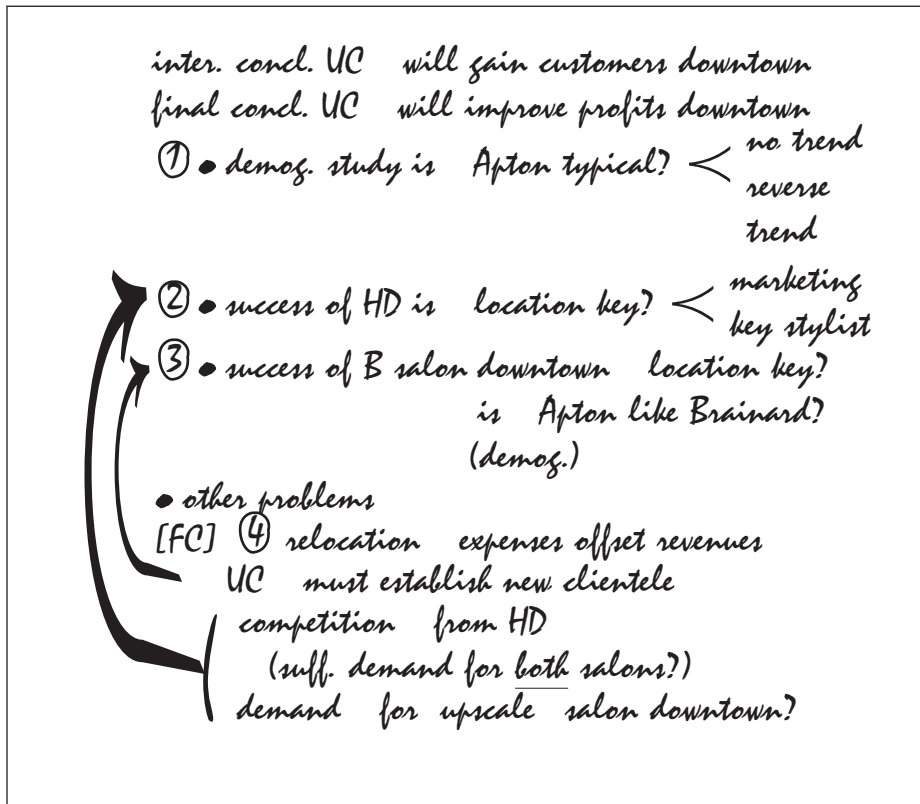 inter. concl. UC will gain customers downtown
final concl. UC will improve profits downtown
① • demog. study is Apton typical? < no trend
reverse
trend
② • success of HD is location key? < marketing
key stylist
③ • success of B salon downtown location key?
is Apton like Brainard?
(demog.)
• other problems
[FC] ④ relocation expenses offset revenues
UC must establish new clientele
competition from HD
(suff. demand for both salons?)
demand for upscale salon downtown?